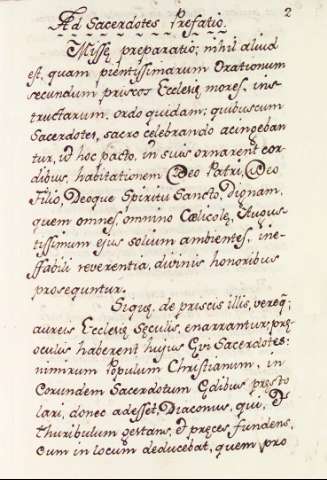 2
Ad Sacerdotes Prefatio.
Missę preparatio; nihil aliud
est, quam pientissimarum Orationum
secundum priscos Ecclesię mores, ins-
tructarum, ordo quidam; quibuscum
Sacerdotes, sacro celebrando acingeban
tur, ut hoc pacto, in suis ornarent cor-
dibus, habitationem Deo Patri, Deo
Filio, Deoque Spiritu Sancto, dignam,
quem omnes, omnino Cælicolę, Augus-
tissimum ejus solium ambientes, ine-
ffabili reverentia, divinis honoribus
prosequntur.
Siquę, de priscis illis, vereq;
aureis Ecclesię Sęculis, enarrantur, prę
oculis haberent hujus Ęvi Sacerdotes:
nimirum Populum Christianum, in
Eorundem Sacerdotum Ędibus pręsto
lari, donec adesset Diaconus, qui, et
thuribulum gestans, et pręces fundens,
Eum in locum deducebat, quem pro